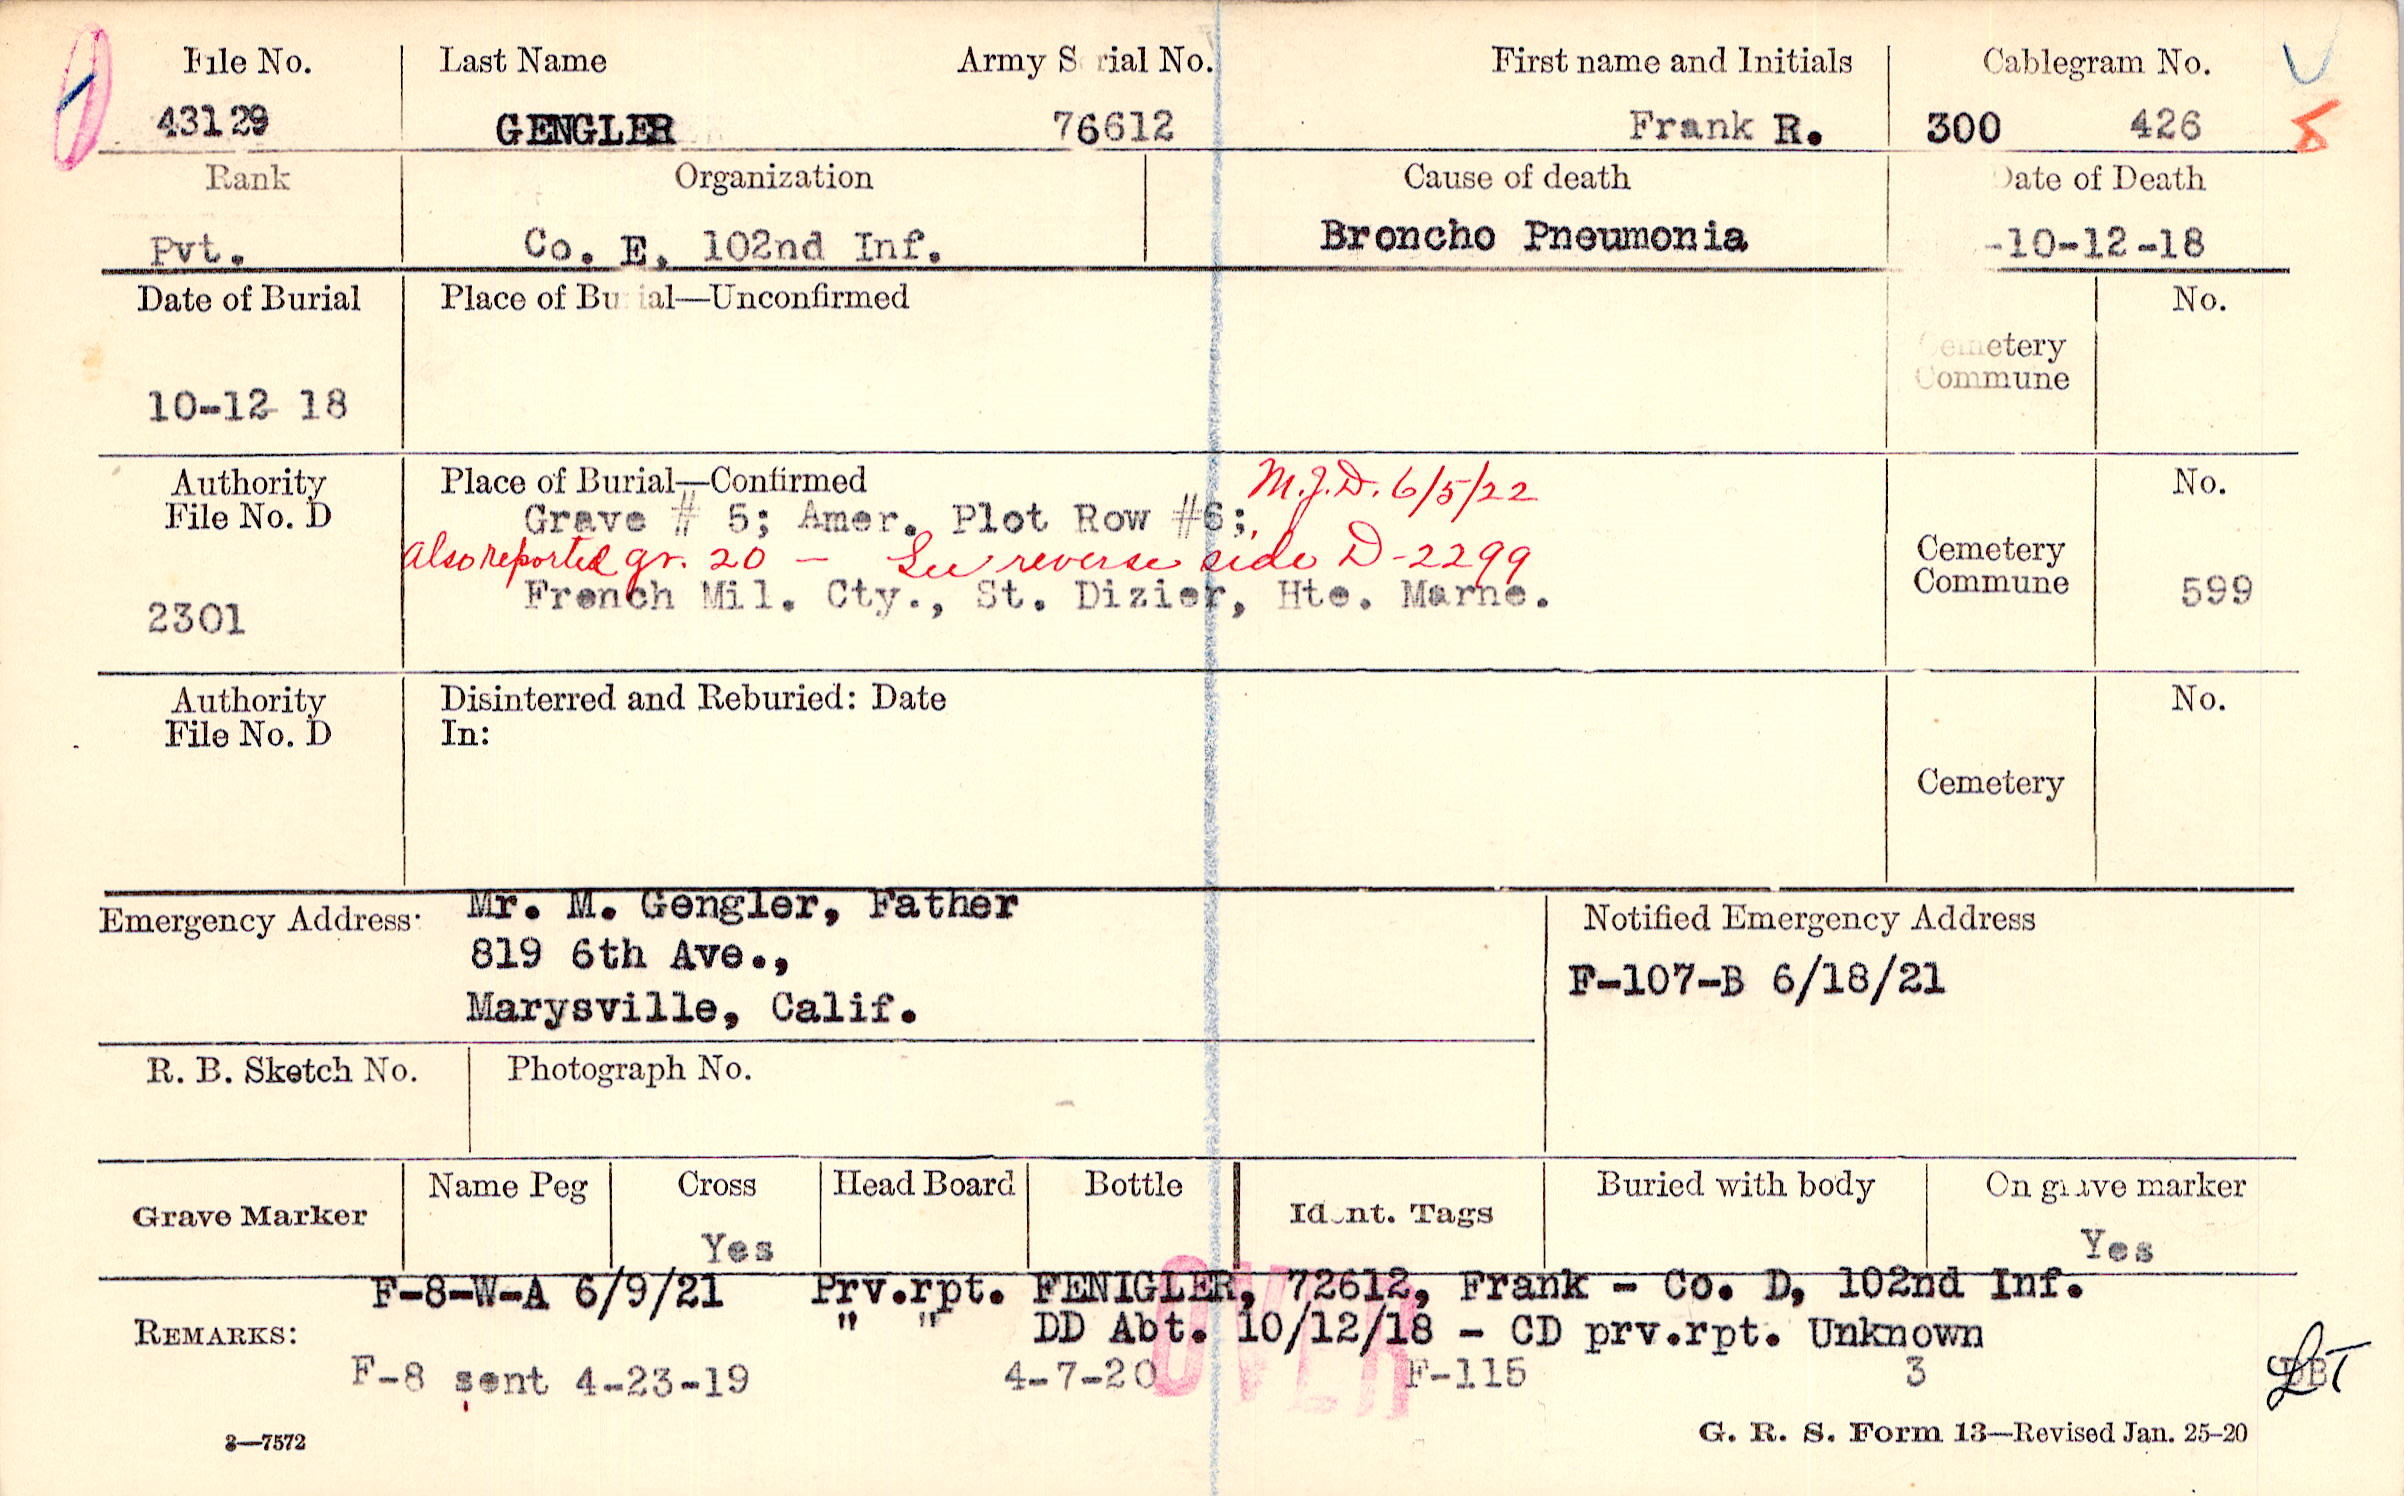 File No. Last Name Army Serial No. First name and Initials Cablegram No.
43129 GENGLER 76612 Frank R. 300 426
Rank Organization Cause of death Date of Death
Pvt. Co. E, 102nd Inf. Broncho Pneumonia -10-12-18
Date of Burial Place of Burial—Unconfirmed No.
Cemetery
Commune
10-12 18
Authority Place of Burial—Confirmed M.J.D. 6/5/22 No.
File No. D Grave # 5; Amer. Plot Row #6;
Also reported gr. 20 — See reverse side D-2299 Cemetery
2301 French Mil. Cty., St. Dizier, Hte. Marne. Commune 599
Authority Disinterred and Reburied: Date No.
File No. D In:
Cemetery
Emergency Address: Mr. M. Gengler, Father Notified Emergency Address
819 6th Ave., F-107-B 6/18/21
Marysville, Calif.
R. B. Sketch No. Photograph No.
Grave Marker Name Peg Cross Head Board Bottle Ident. Tags Buried with body On grave marker
Yes Yes
F-8-W-A 6/9/21 Prv.rpt. FENIGLER, 72612, Frank - Co. D, 102nd Inf.
REMARKS: " " DD Abt. 10/12/18 - CD prv.rpt. Unknown
F-8 sent 4-23-19 4-7-20 F-115 3
OVER
3—7572 G. R. S. Form 13—Revised Jan. 25-20